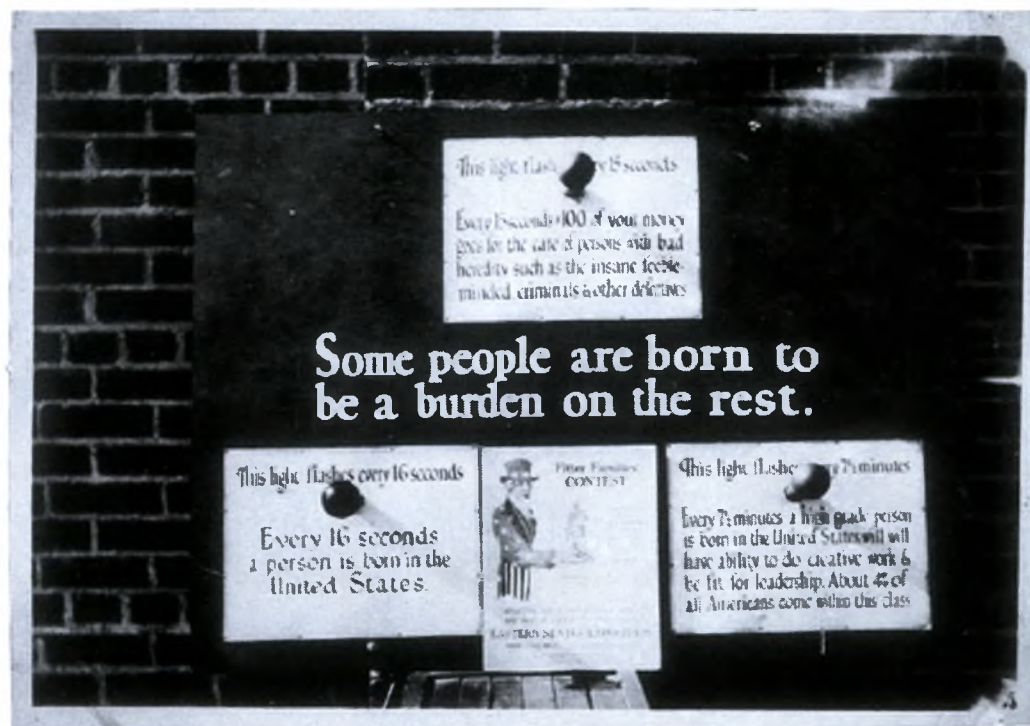 This light flashes every 15 seconds
Every 15 seconds $100 of your money
goes for the care of persons with bad
heredity such as the insane feeble-
minded, criminals & other defectives
Some people are born to
be a burden on the rest.
This light flashes every 16 seconds
Every 16 seconds
a person is born in the
United States.
Fitter Families
CONTEST
EASTERN STATES EXPOSITION
This light flashes every 7½ minutes
Every 7½ minutes a high grade person
is born in the United States will
have ability to do creative work &
be fit for leadership. About 4% of
all Americans come within this class